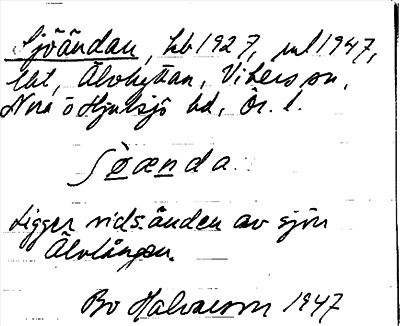 Sjöändan, hb 1927, ml 1947,
lht, Älvhyttan, Vikers sn,
Nora o Hjulsjö bd, Ör. l.
ʃøænda.
Ligger vids. änden av sjön
Älvlången.
Bo Halvarson 1947